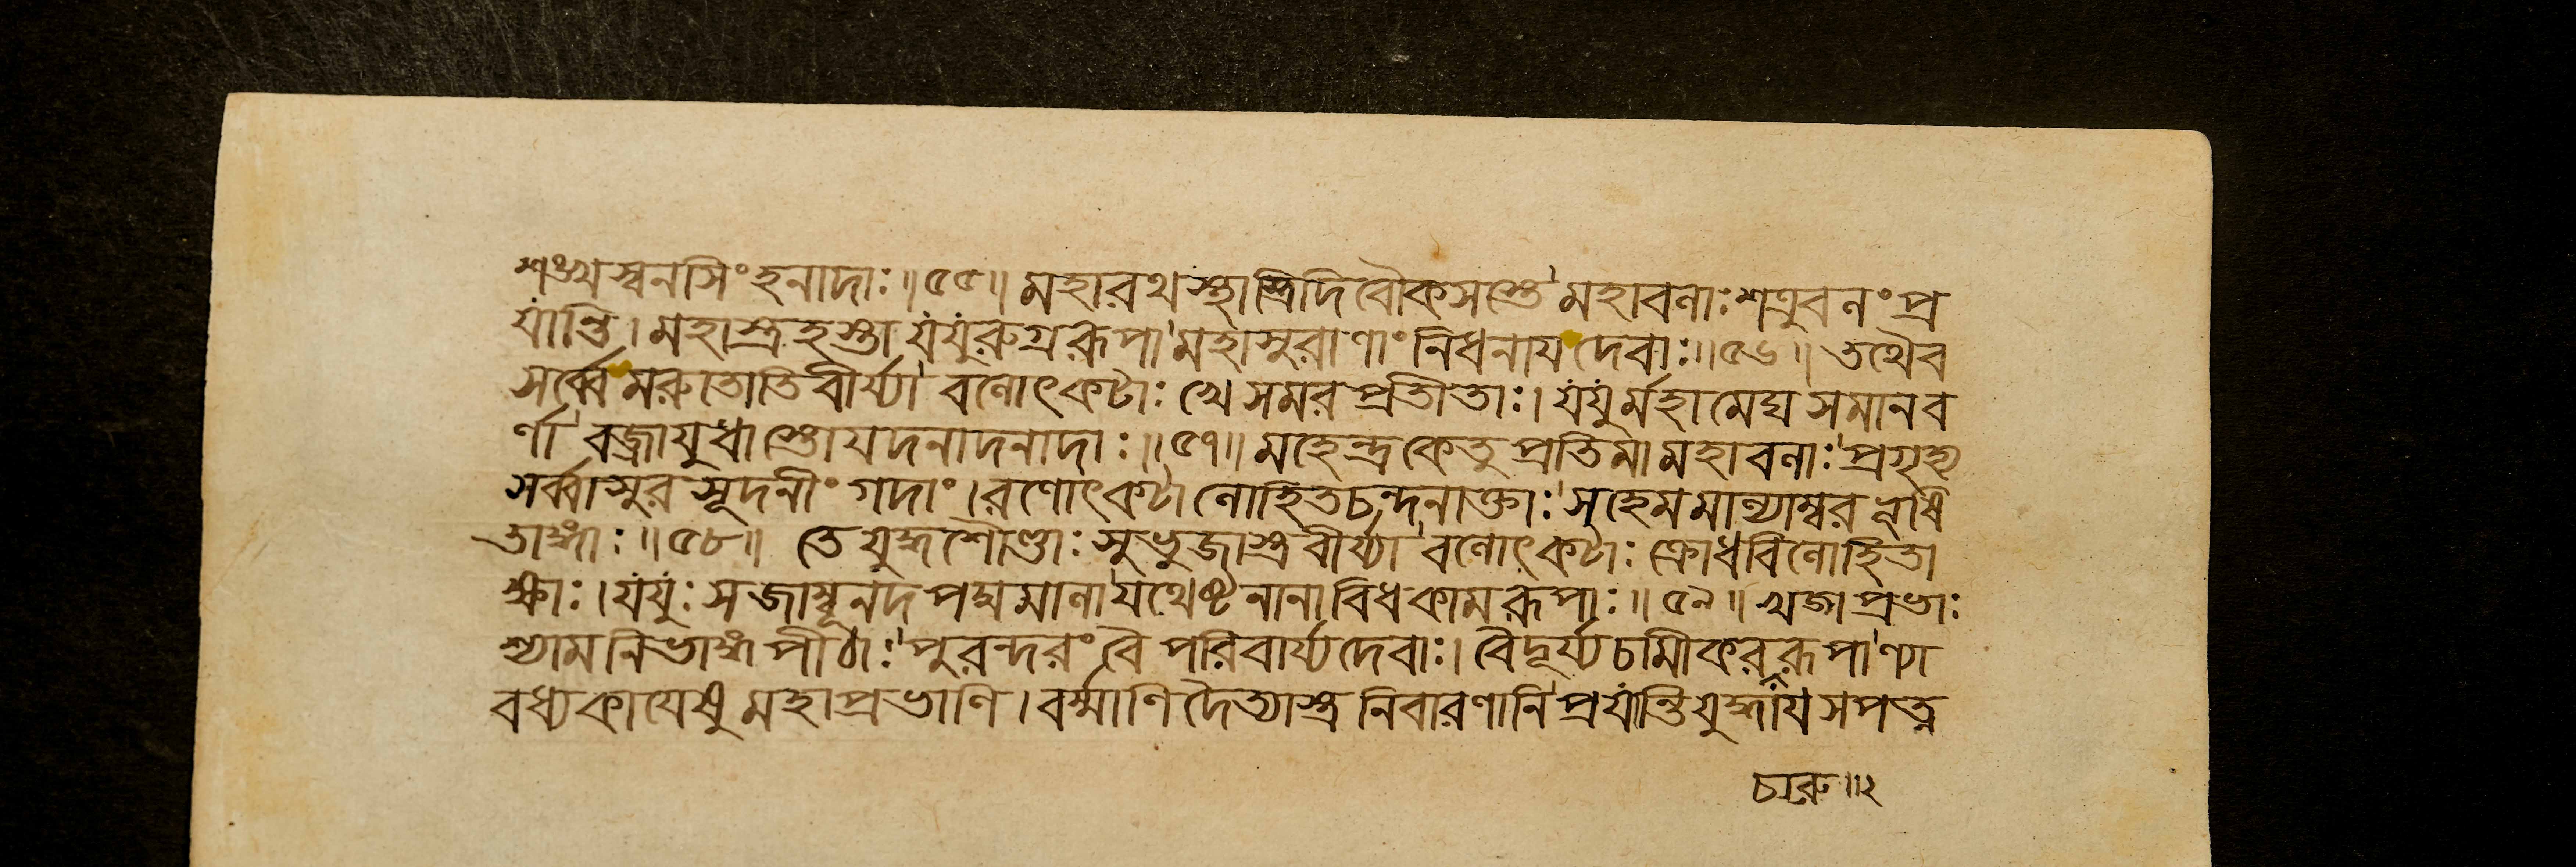 শঙ্খস্বনসিংহনাদাঃ॥৫৫॥ মহারথস্থাস্ত্রিদিবৌকসস্তে' মহাবলাঃ শত্রুবলং প্র
যান্তি। মহাস্ত্রহস্তা যযুরুগ্ররূপা' মহাসুরাণাং নিধনায দেবাঃ॥৫৬॥ তথৈব
সর্ব্বে মরুতোতিবীর্য্যা' বলোৎকটাঃ খে সমরপ্রতীতাঃ। যযুর্মহামেঘসমানব
র্ণা' বজ্রাযুধাস্তোযদনাদনাদাঃ॥৫৭॥ মহেন্দ্রকেতুপ্রতিমা মহাবলাঃ' প্রগৃহ্য
সর্ব্বাসুরসূদনীং গদাং। রণোৎকটা লোহিতচন্দনাক্তাঃ' সুহেমমাল্যাম্বরভূষি
তাঙ্গাঃ॥৫৮॥ তে যুদ্ধশৌণ্ডাঃ সুভুজাস্ত্রবীর্য্যা' বলোৎকটাঃ ক্রোধবিলোহিতা
ক্ষাঃ। যযুঃ সজাম্বূনদপদ্মমালা' যথেষ্টনানাবিধকামরূপাঃ॥৫৯॥ খড়্গপ্রভাঃ
শ্যামনিভাঙ্গপীঠাঃ' পুরন্দরং বৈ পরিবার্য্য দেবাঃ। বৈদূর্য্যচামীকররূপা'ণ্যা
বধ্য কাযেষু মহাপ্রভাণি। বর্ম্মাণি দৈত্যাস্ত্রনিবারণানি' প্রযান্তি যুদ্ধায সপত্ন
চারু॥২